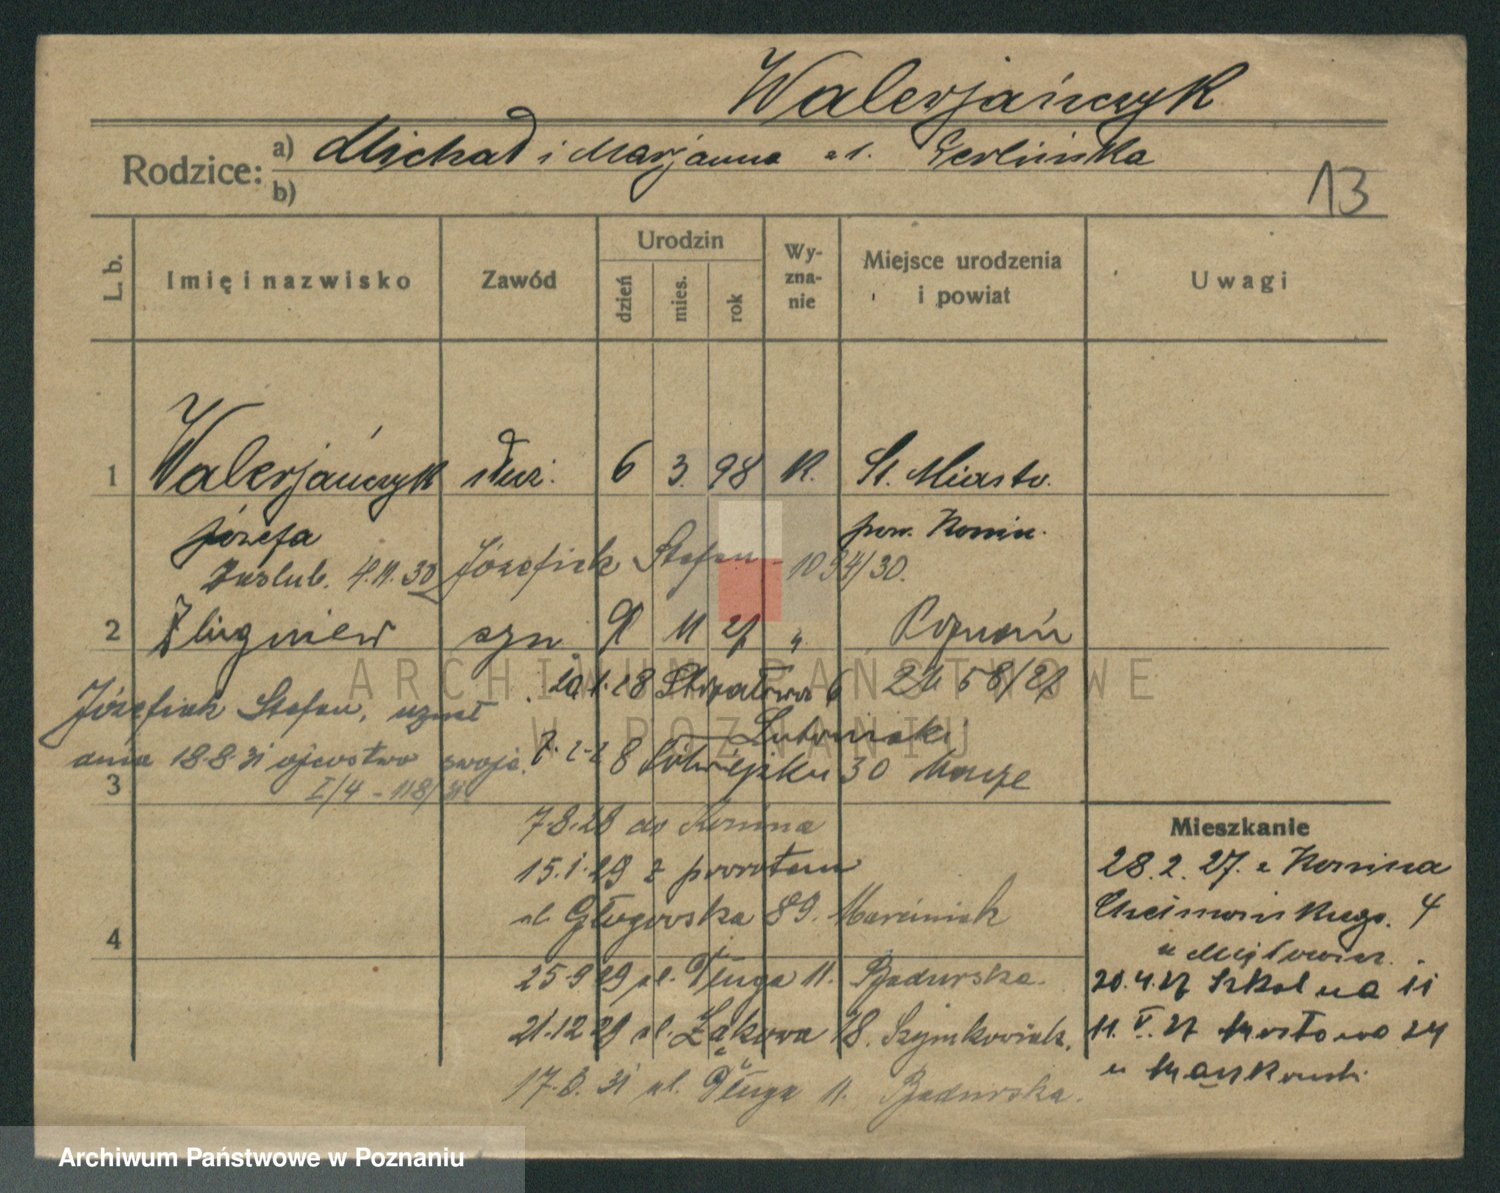 Walerjańczyk
Rodzice: a) Michał i Marjanna z d. Gerlińska
b)
13
L. b.
Imię i nazwisko
Zawód
Urodzin
dzień
mies.
rok
Wy-
zna-
nie
Miejsce urodzenia
i powiat
Uwagi
1 Walerjańczyk służ. 6 3. 98 K. St. Miasto.
Józefa pow. Konin.
Zaślub. 4.11.30 Józefiak Stefan - 1034/30.
2 Zbigniew syn 9 11 27 " Poznań
20.1.28 Strzałowa 6
Józefiak Stefan, uznał
dnia 18.8.31 ojcostwo swoje.
3 I/4 - 118/31
7.2.28 30
7.8.28 do Konina
15.1.29 z powrotem
ul. Głogowska 89. Marciniak
4
25.9.29 ul. Długa 11. Badurska.
21.12.29 ul. Łąkowa 18. Szymkowiak.
17.8.31 ul. Długa 11. Badurska.
Mieszkanie
28.2.27. z Konina
4
20.4.27 Szkolna 11
11.V.27 Mostowa 24
u Mańkowski
ARCHIWUM PAŃSTWOWE
W POZNANIU
Archiwum Państwowe w Poznaniu